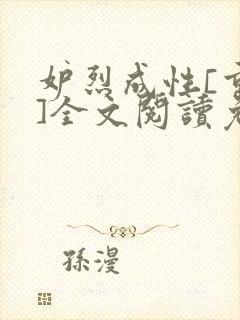 妒烈成性[重
]全文閱讀免
孫漫